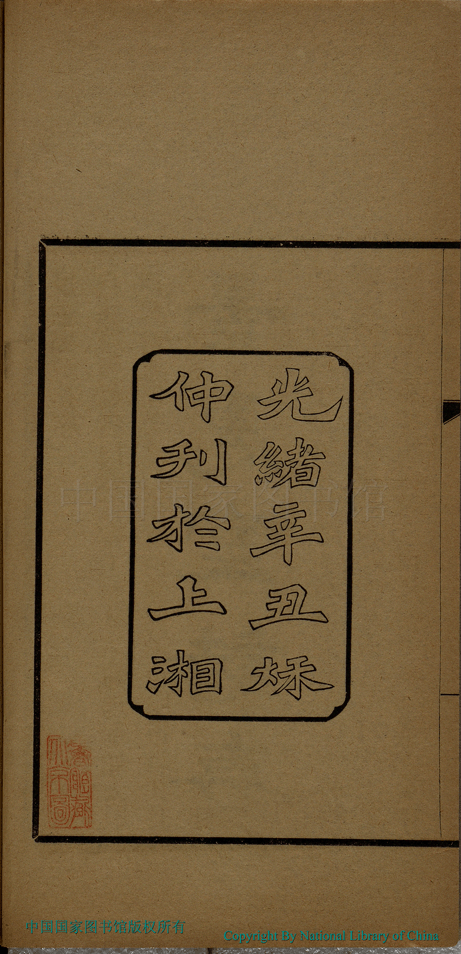 光緒辛丑烁
仲刊於上湘
中国国家图书馆
中国国家图书馆版权所有
Copyright By National Library of China